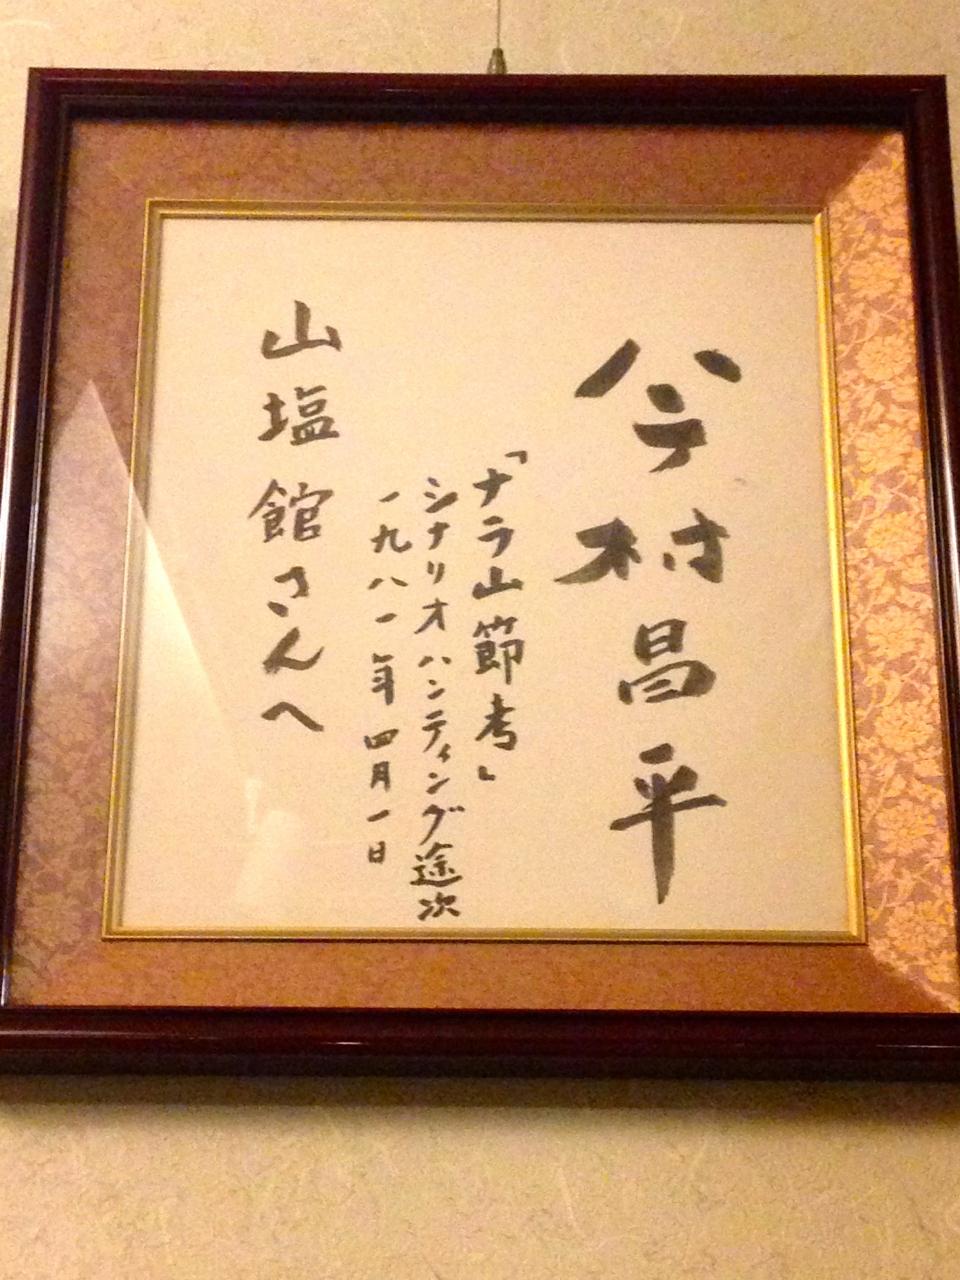 今村昌平
「ナラ山節考」
シナリオハンティング途次
一九八一年四月一日
山塩館さんへ